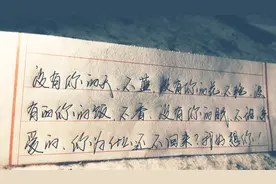 没有你的天、不蓝、没有你的花、不艳、没
有的你的饭、不香、没有你的眠、不甜、亲
爱的、你为什么还不回来？我好想你、！